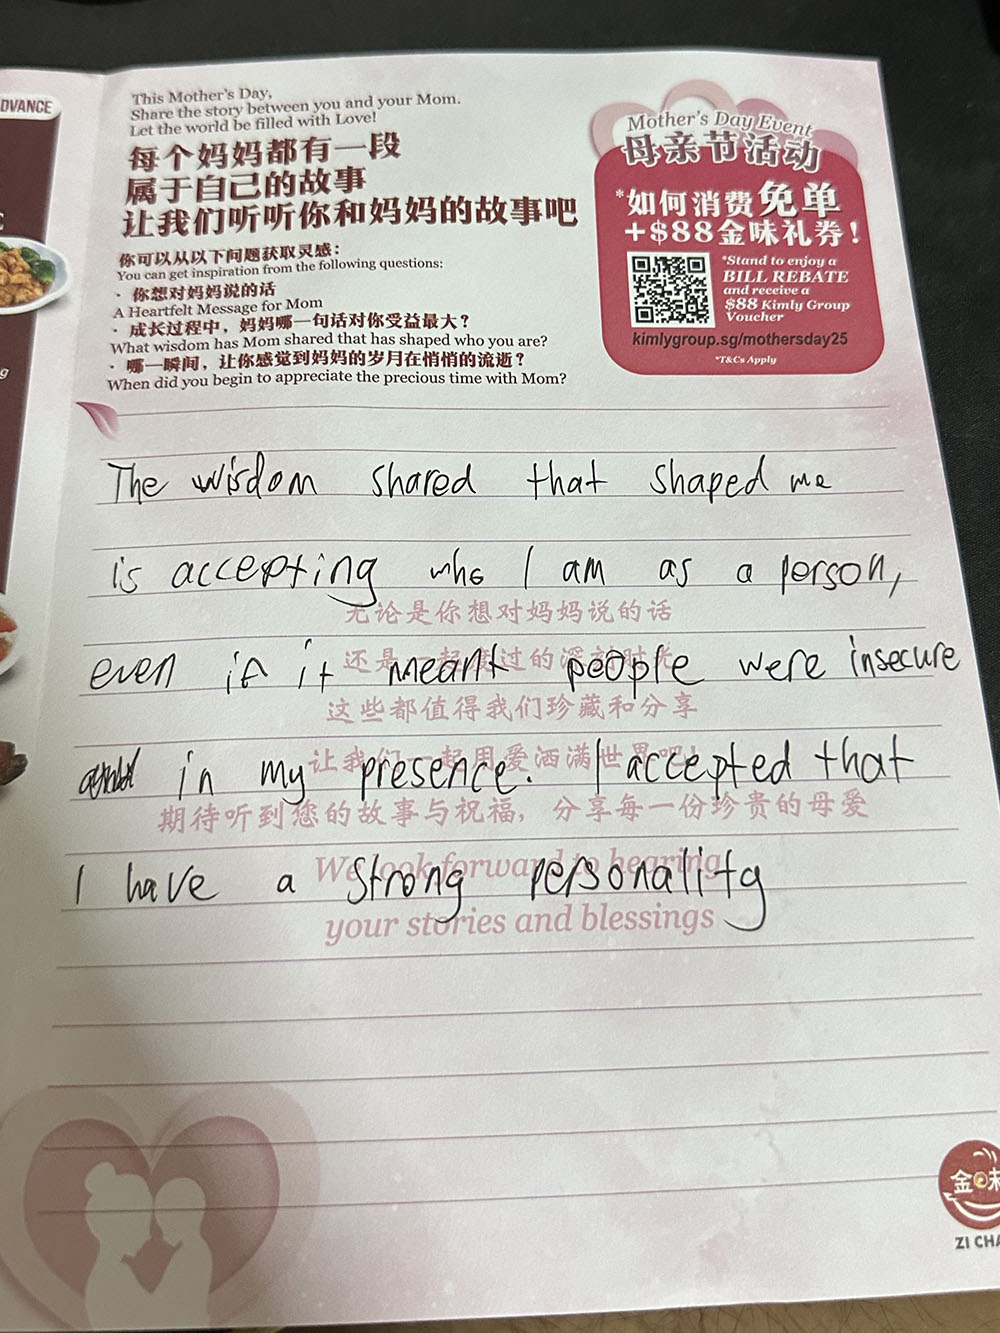 DVANCE
This Mother's Day,
Share the story between you and your Mom.
Let the world be filled with Love!
每个妈妈都有一段
属于自己的故事
让我们听听你和妈妈的故事吧
你可以从以下问题获取灵感：
You can get inspiration from the following questions:
· 你想对妈妈说的话
A Heartfelt Message for Mom
· 成长过程中，妈妈哪一句话对你受益最大？
What wisdom has Mom shared that has shaped who you are?
· 哪一瞬间，让你感觉到妈妈的岁月在悄悄的流逝？
When did you begin to appreciate the precious time with Mom?
Mother's Day Event
母亲节活动
*如何消费免单
+$88金味礼券！
*Stand to enjoy a
BILL REBATE
and receive a
$88 Kimly Group
Voucher
kimlygroup.sg/mothersday25
*T&Cs Apply
The wisdom shared that shaped me
is accepting who I am as a person,
无论是你想对妈妈说的话
even if it meant people were insecure
还是一起度过的深刻时光
这些都值得我们珍藏和分享
in my presence. I accepted that
让我们一起用爱洒满世界吧！
期待听到您的故事与祝福，分享每一份珍贵的母爱
I have a strong personality
We look forward to hearing
your stories and blessings
金味
ZI CHA